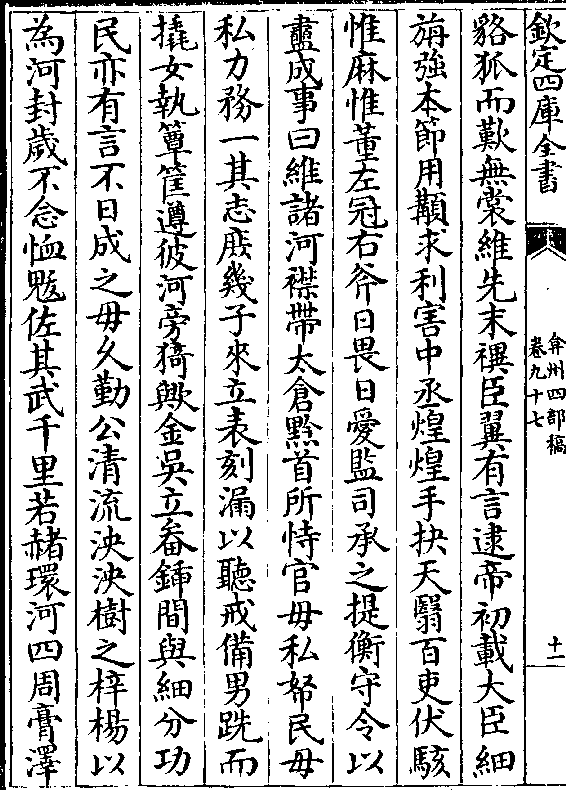 欽定四庫全書
弇州四部稿
卷九十七
十一
貉狐而歎無裳維先末禩臣翼有言逮帝初載大臣細
旃強本節用顓求利害中丞煌煌手抉天翳百吏伏駭
惟麻惟董左冠右斧日畏日愛監司承之提衡守令以
蠱成事曰維諸河襟帶太倉黔首所恃官毋私帑民毋
私力務一其志庻幾子來立表刻漏以聽戒備男跣而
撬女執簞筐遵彼河旁猗歟金吳立畚鍤間與細分功
民亦有言不日成之毋久勤公清流泱泱樹之梓楊以
為河封歲不念恤魃佐其武千里若赭環河四周膏澤